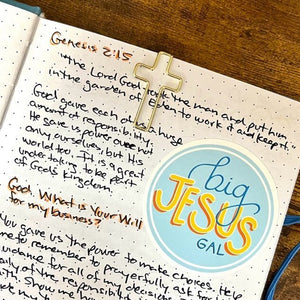 Genesis 2:15
"The Lord God took the man and put him
in the garden of Eden to work it and keep it.
God gave each of us a huge
amount of responsibility.
He gave us power over not
only ourselves, but this
world too. It is a great
undertaking to be part
of God's kingdom.
God, What is Your Will
for my business?
You gave us the power to make choices. Help
me to remember to prayerfully ask for
guidance for all of my decisions
of the responsibility
Show me
big
JESUS
GAL